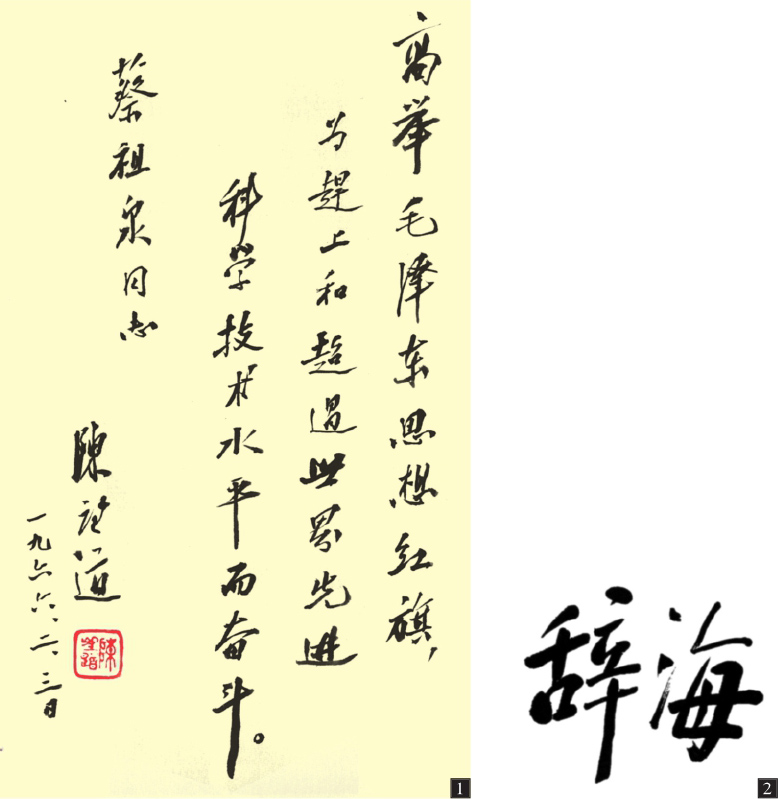 高举毛泽东思想红旗，
为赶上和超过世界先进
科学技术水平而奋斗。
蔡祖泉同志
陳望道
一九六六、二、三日
陳望道
1
辞海
2